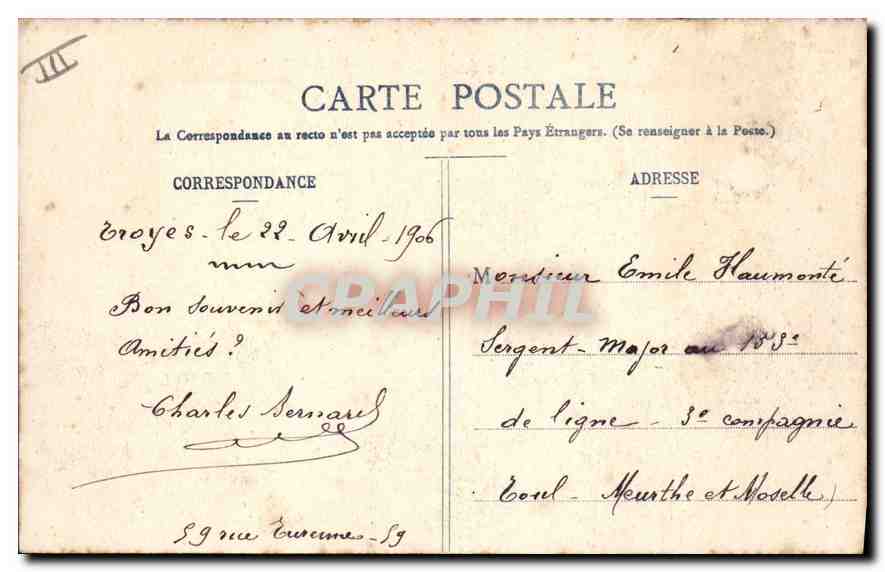 III
CARTE POSTALE
La Correspondance au recto n'est pas acceptée par tous les Pays Étrangers. (Se renseigner à la Poste.)
CORRESPONDANCE
Troyes - le 22 - Avril - 1906
Bon souvenir et meilleurs
Amitiés ?
Charles Bernard
59 rue Turenne - 59
ADRESSE
Monsieur Emile Haumonté
Sergent - Major au 153e
de ligne - 3e compagnie
Toul - Meurthe et Moselle
CPAPHIL